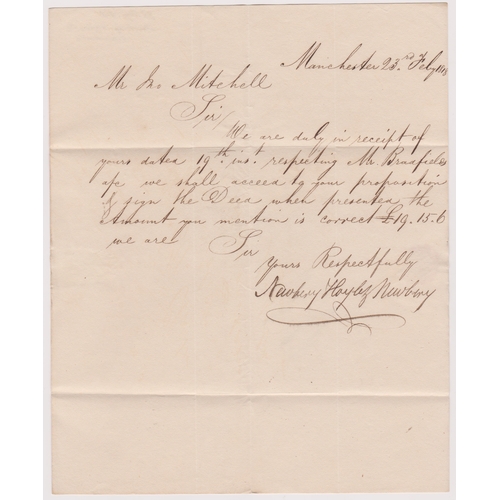 Manchester 23rd Feby
Mr Jno Mitchell
Sir/
We are duly in receipt of
yours dated 19th inst. respecting Mr Bradfields
a/c we shall acceed to your proposition
& sign the Deed when presented the
Amount you mention is correct £19.15.6
we are Sir
Yours Respectfully
Newbery Newbery